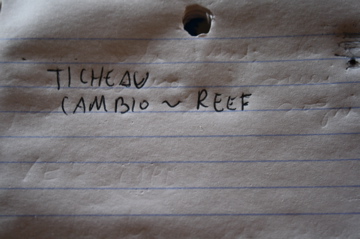 TICHEAU
CAMBIO ~ REEF